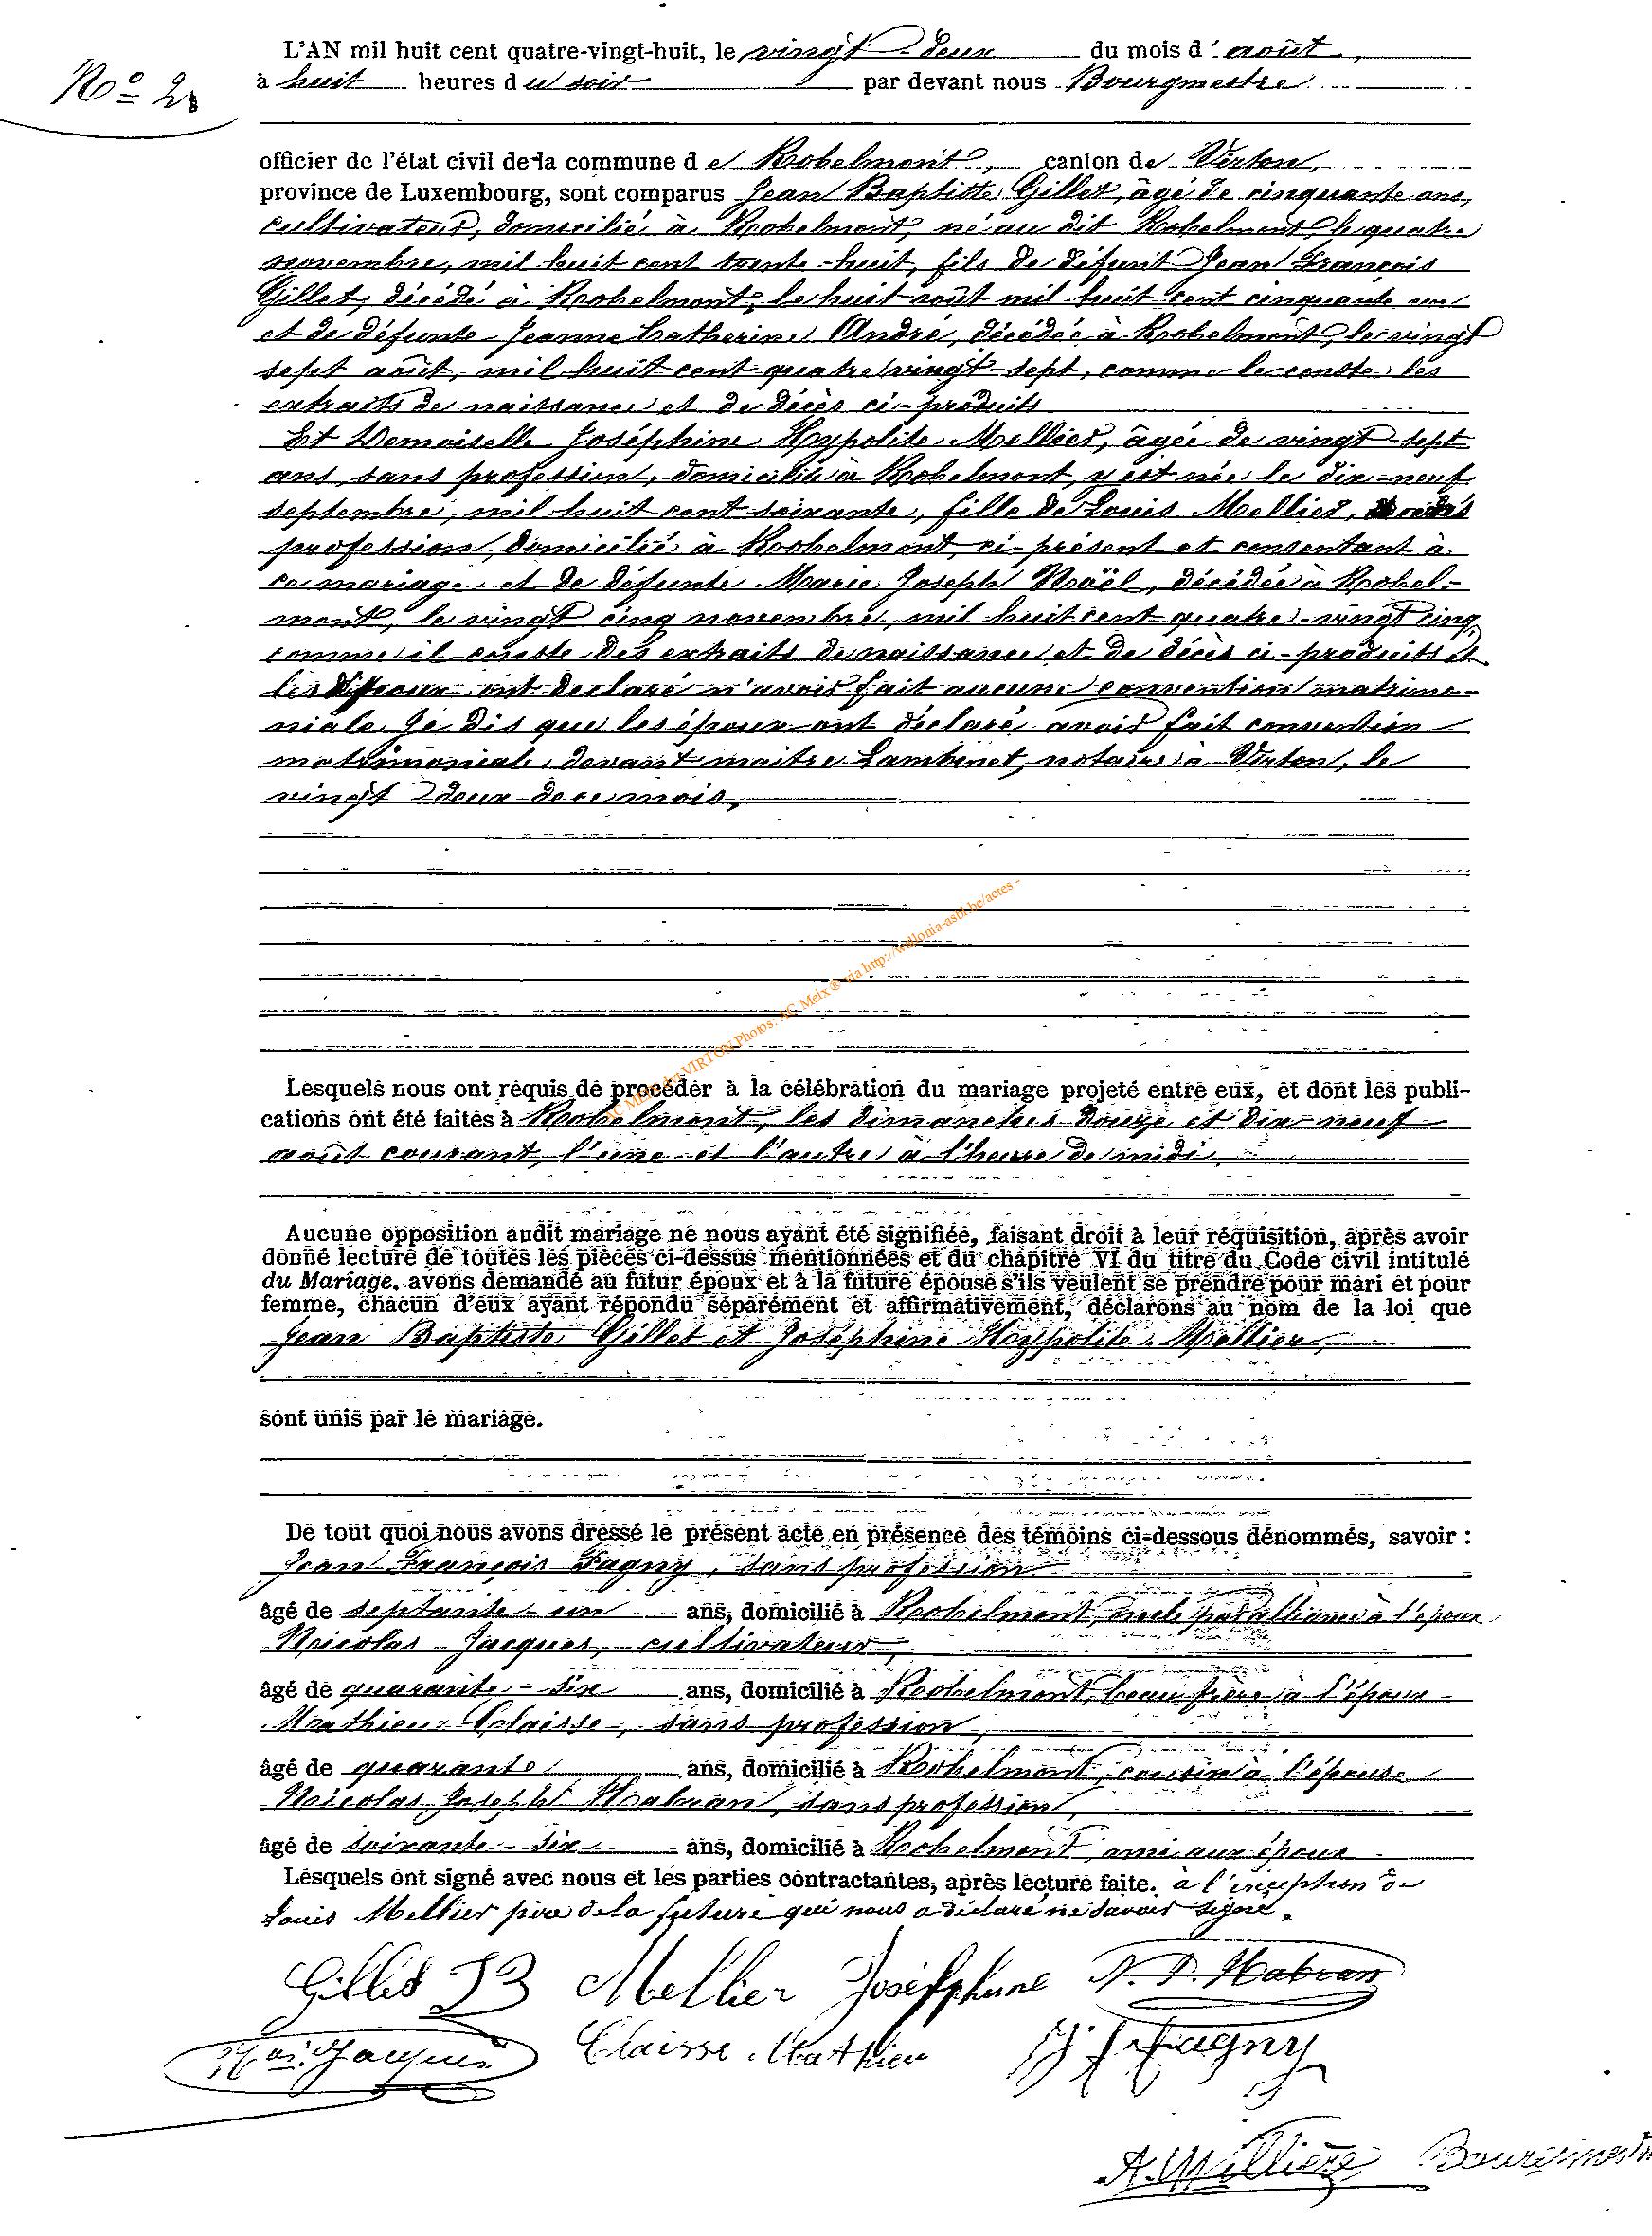 N° 2
L'AN mil huit cent quatre-vingt-huit, le vingt-deux du mois d'août,
à huit heures du soir par devant nous Bourgmestre
officier de l'état civil de la commune de Robelmont, canton de Virton,
province de Luxembourg, sont comparus Jean Baptiste Gillet, âgé de cinquante ans,
cultivateur, domicilié à Robelmont, né au dit Robelmont, le quatre
novembre, mil huit cent trente-huit, fils de défunt Jean François
Gillet, décédé à Robelmont, le huit août mil huit cent cinquante un
et de défunte Jeanne Catherine André, décédée à Robelmont, le vingt
sept août, mil huit cent quatre vingt-sept, comme le conste les
extraits de naissance et de décès ci-produits
Et Demoiselle Joséphine Hypolite Mellier, âgée de vingt-sept
ans, sans profession, domiciliée à Robelmont, y est née le dix-neuf
septembre, mil huit cent soixante, fille de Louis Mellier,
profession, domicilié à Robelmont, ci-présent et consentant à
ce mariage et de défunte Marie Joseph Noël, décédée à Robel-
mont, le vingt cinq novembre, mil huit cent quatre-vingt cinq,
comme il conste des extraits de naissance et de décès ci-produits et
les époux ont declaré n'avoir fait aucune convention matrimo-
niale. Je dis que les époux ont déclaré avoir fait convention
matrimoniale devant maitre Lambinet, notaire à Virton, le
vingt deux de ce mois,
AC MEIX-dvt VIRTON Photos: AC Meix ® via http://wallonia-asbl.be/actes -
Lesquels nous ont requis de procéder à la célébration du mariage projeté entre eux, et dont les publi-
cations ont été faites à Robelmont, les dimanches douze et dix-neuf
août courant, l'une et l'autre à l'heure de midi,
Aucune opposition audit mariage ne nous ayant été signifiée, faisant droit à leur réquisition, après avoir
donné lecture de toutes les pièces ci-dessus mentionnées et du chapitre VI du titre du Code civil intitulé
du Mariage, avons demandé au futur époux et à la future épouse s'ils veulent se prendre pour mari et pour
femme, chacun d'eux ayant répondu séparément et affirmativement, déclarons au nom de la loi que
Jean Baptiste Gillet et Joséphine Hypolite Mellier,
sont unis par le mariage.
De tout quoi nous avons dressé le présent acte en présence des témoins ci-dessous dénommés, savoir :
Jean François Fagny, sans profession
âgé de septante-un ans, domicilié à Robelmont, oncle par alliance à l'époux
Nicolas Jacques, cultivateur,
âgé de quarante-six ans, domicilié à Robelmont, beau frère à l'époux
Mathieu Claisse, sans profession,
âgé de quarante ans, domicilié à Robelmont, cousin à l'épouse
Nicolas Joseph Habran, sans profession,
âgé de soixante-six ans, domicilié à Robelmont, ami aux époux
Lesquels ont signé avec nous et les parties contractantes, après lecture faite. à l'exception de
Louis Mellier père de la future qui nous a déclaré ne savoir signé.
Gillet JB Mellier Joséphine N. J. Habran
Nas. Jacques Claisse Mathieu J f Fagny
A. Millière Bourgmestre